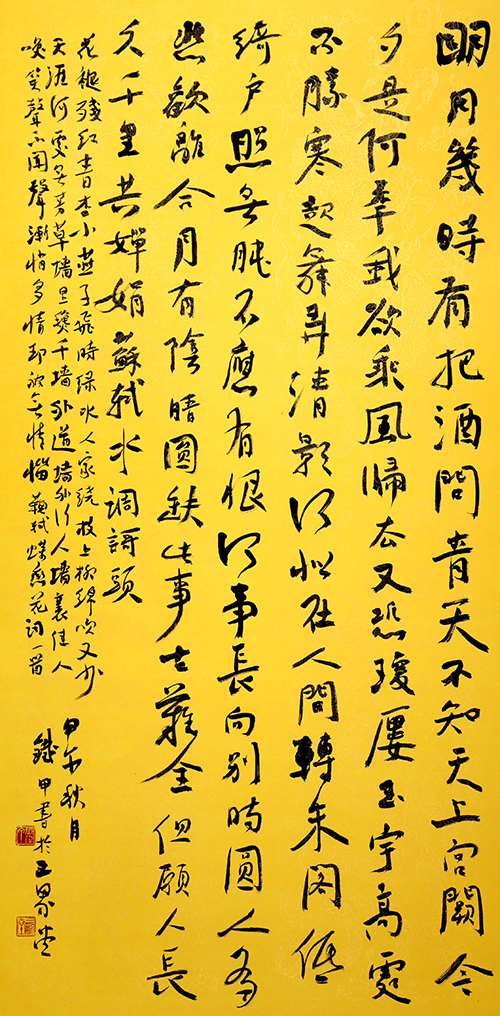 明月幾時有把酒問青天不知天上宮闕今
夕是何年我欲乘風歸去又恐瓊廔玉宇高處
不勝寒起舞弄清影何似在人間轉朱閣低
綺戶照無眠不應有恨何事長向別時圓人有
悲歡離合月有陰晴圓缺此事古難全但願人長
久千里共嬋娟蘇軾水調謌頭
花褪殘紅青杏小燕子飛時綠水人家繞枝上柳綿吹又少
天涯何處無芳草墻里鞦千墻外道墻外行人墻裏佳人
笑聲不聞聲漸悄多情却被無情惱蘇軾蝶戀花词一首
甲午秋月
鐵甲書於